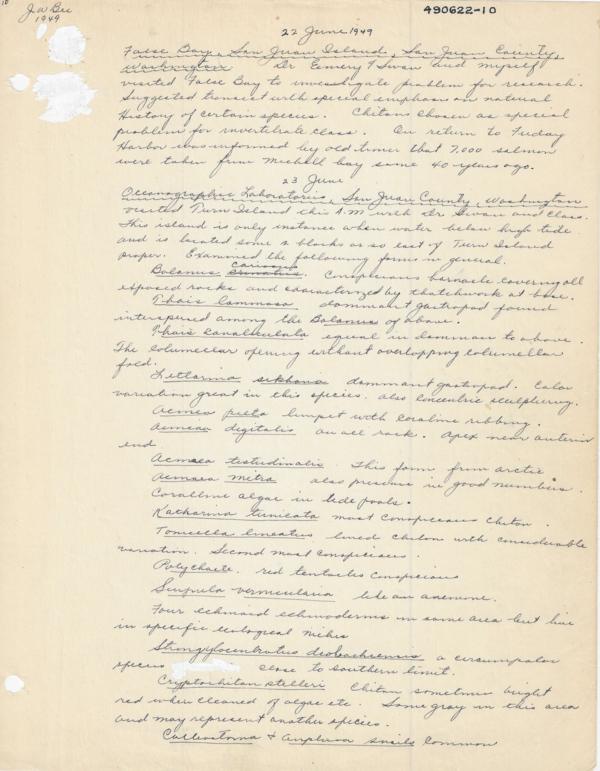 J W Bee
1949
490622-10
22 June 1949
False Bay, San Juan Island, San Juan County,
Washington Dr Emery F Swan and myself
visited False Bay to investigate problem for research.
Suggested transect with special emphasis on natural
History of certain species. Chitons chosen as special
problem for invertibrate class. On return to Friday
Harbor was informed by old timer that 7,000 salmon
were taken from Michell bay some 40 years ago.
23 June
Oceanographic Laboratories, San Juan County, Washington
visited Turn Island this A.M with Dr Swan and Class.
This island is only instance when water below high tide
and is located some 2 blocks or so east of Turn Island
proper. Examined the following forms in general.
Balanus cariosus. Conspicuous barnacle covering all
exposed rocks and characterized by thatchwork at base.
Thais lammosa dominant gastropod found
interspersed among the Balanus of above.
Thais canaliculata equal in dominance to above.
The columellar opening without overlapping columellar
fold.
Littorina sitkana dominant gastropod. Color
variation great in this species. Also concentric sculpturing.
Acmea limpet with coraline ribbing.
Acmaea digitalis on all rock. Apex near anterior
end
Acmaea testudinalis This form from arctic
Acmaea mitra also present in good numbers.
Coralline algae in tide pools.
Katharina tunicata most conspicuous chiton.
Tonicella lineatus lined chiton with considerable
variation. Second most conspicuous.
Polychaete. red tentacles conspicuous
Serpula vermicularia like an anemone.
Four echinoid echinoderms in same area but live
in specific ecological niches
Strongylocentrotus drobachiensis a circumpolar
species close to southern limit.
Cryptochiton stelleri Chiton sometimes bright
red when cleaned of algae etc. Some gray in this area
and may represent another species.
Calliostoma & Amphissa snails common